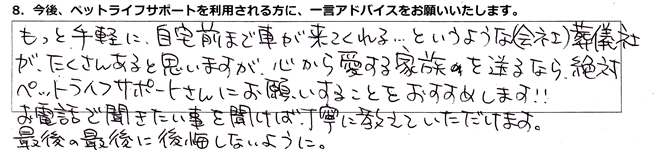 8. 今後、ペットライフサポートを利用される方に、一言アドバイスをお願いいたします。
もっと手軽に、自宅前まで車が来てくれる…というような(会社)葬儀社
が、たくさんあると思いますが、心から愛する家族を送るなら、絶対
ペットライフサポートさんにお願いすることをおすすめします!!
お電話で聞きたい事を聞けば、丁寧に教えていただけます。
最後の最後に後悔しないように。